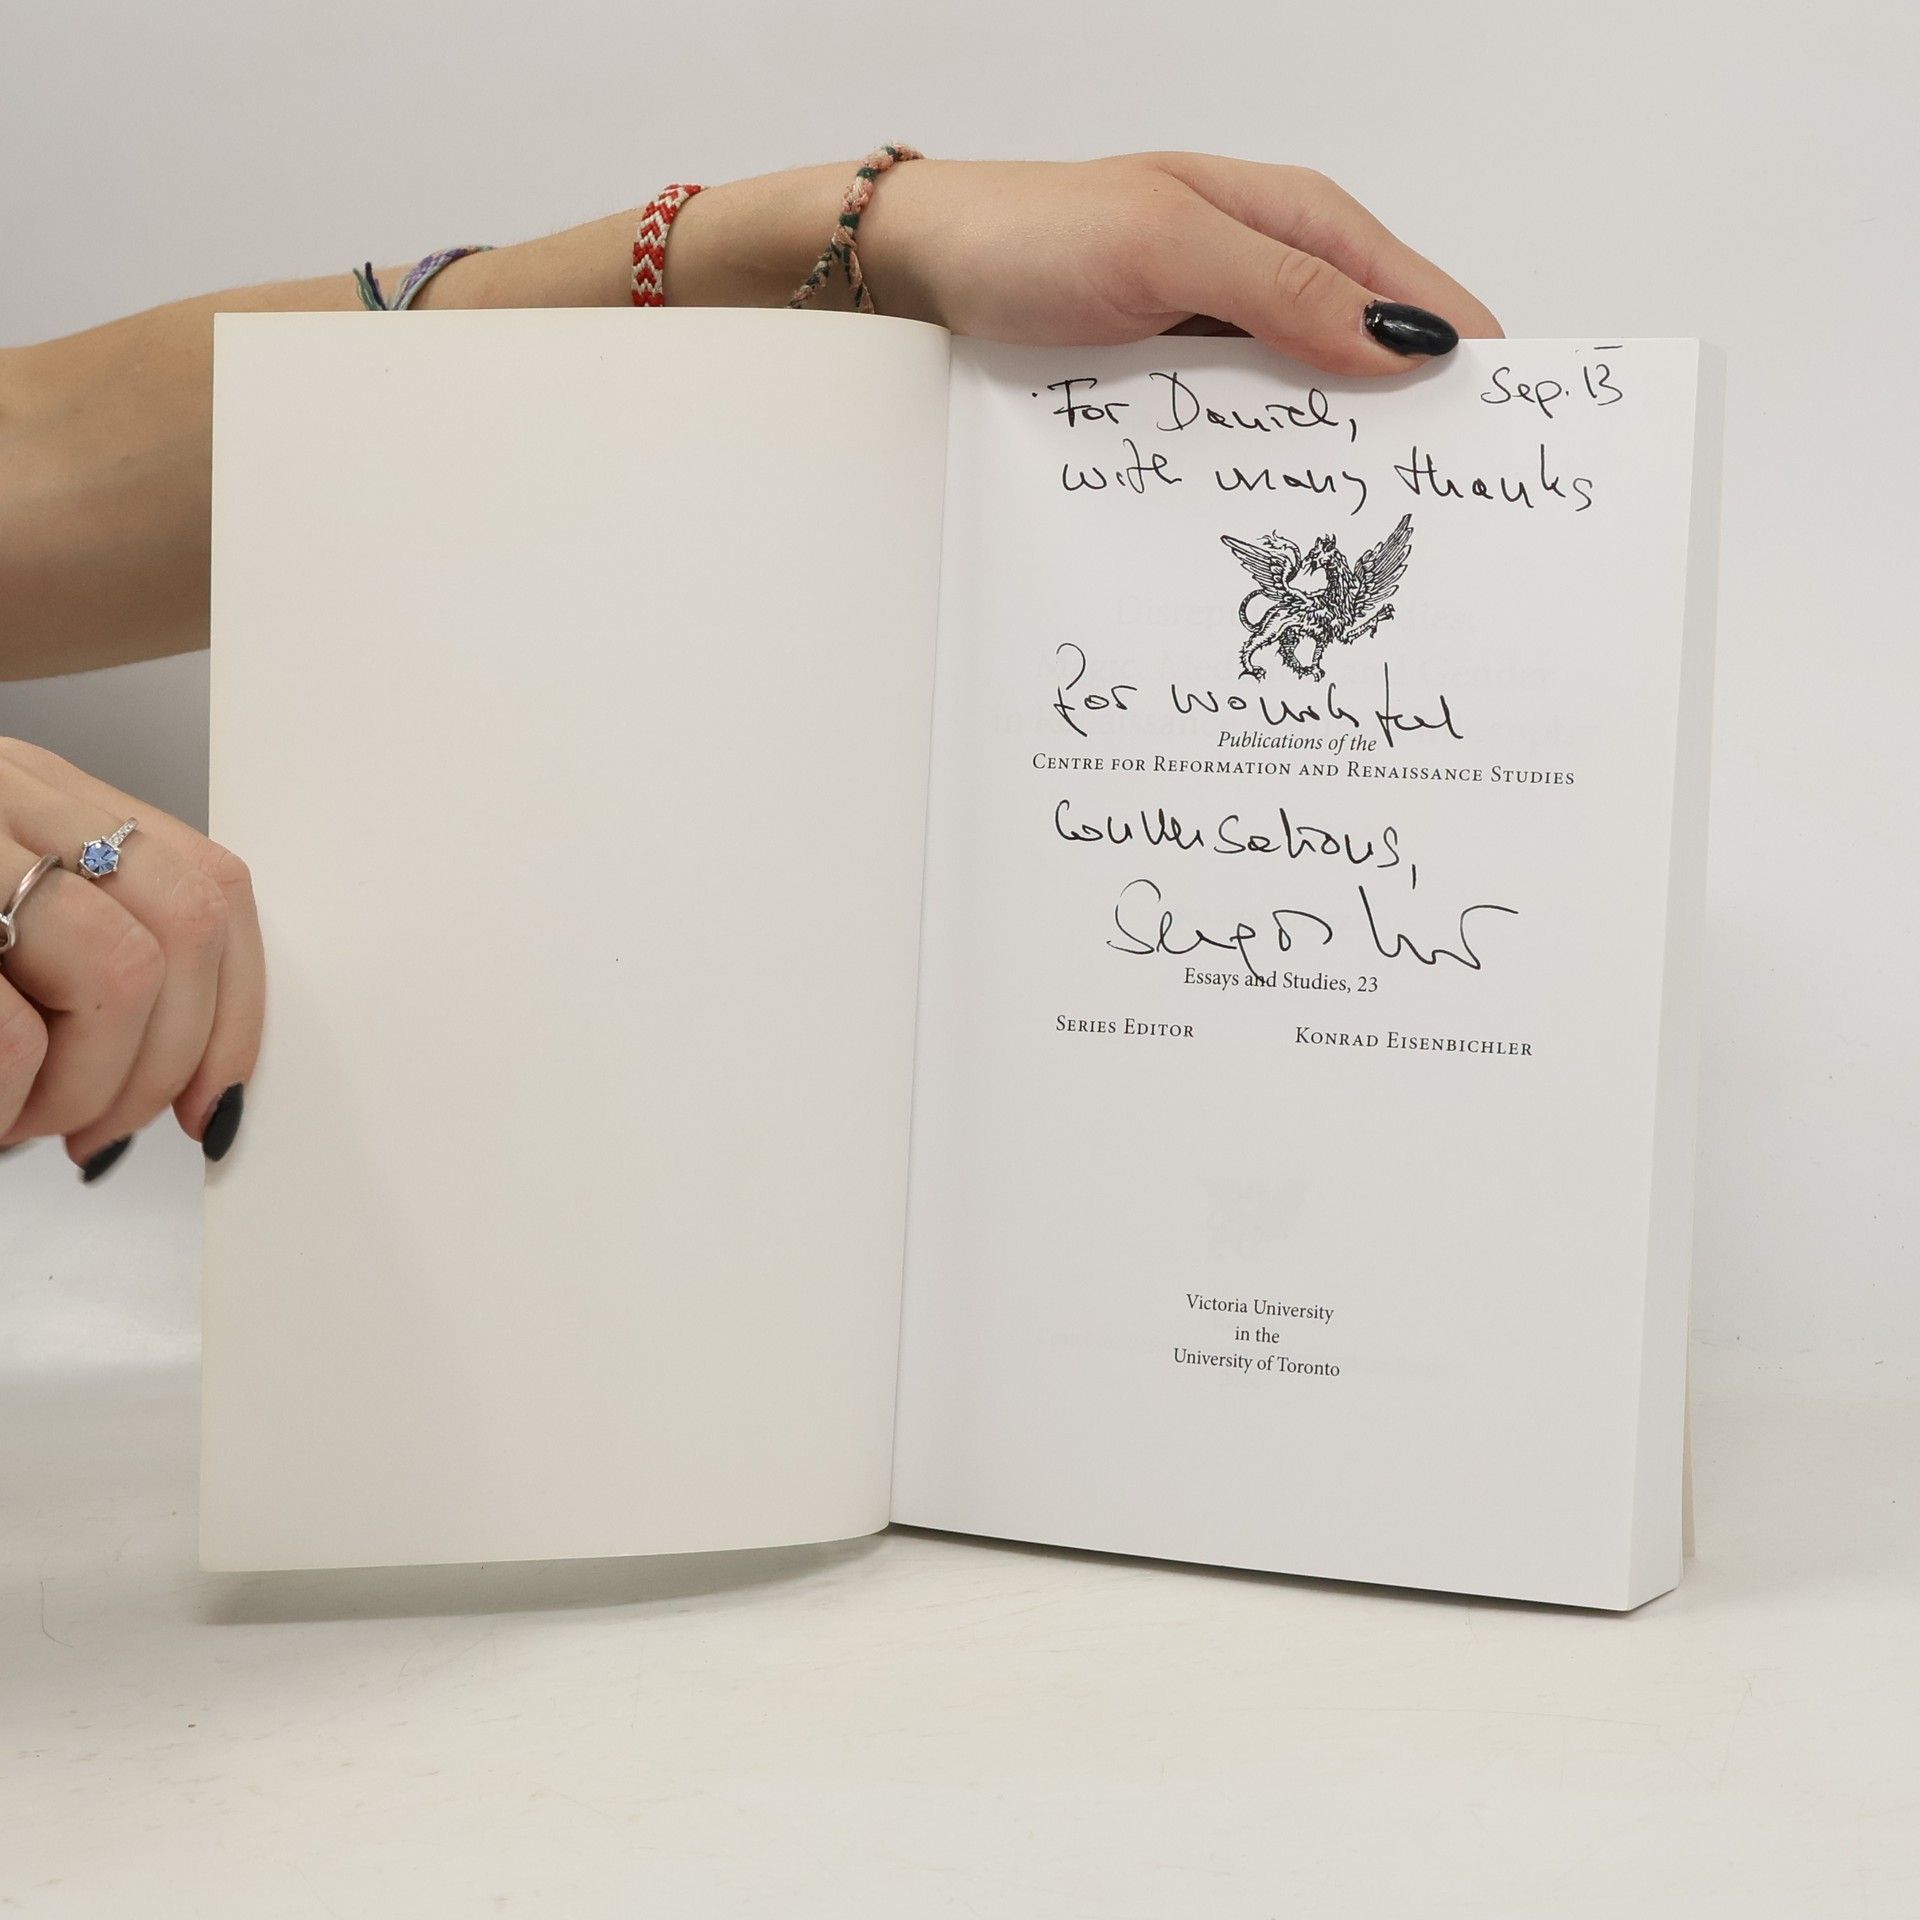 Sep. 13
For Daniel,
with many thanks
for wonderful
Publications of the
CENTRE FOR REFORMATION AND RENAISSANCE STUDIES
conversations,
Essays and Studies, 23
SERIES EDITOR KONRAD EISENBICHLER
Victoria University
in the
University of Toronto